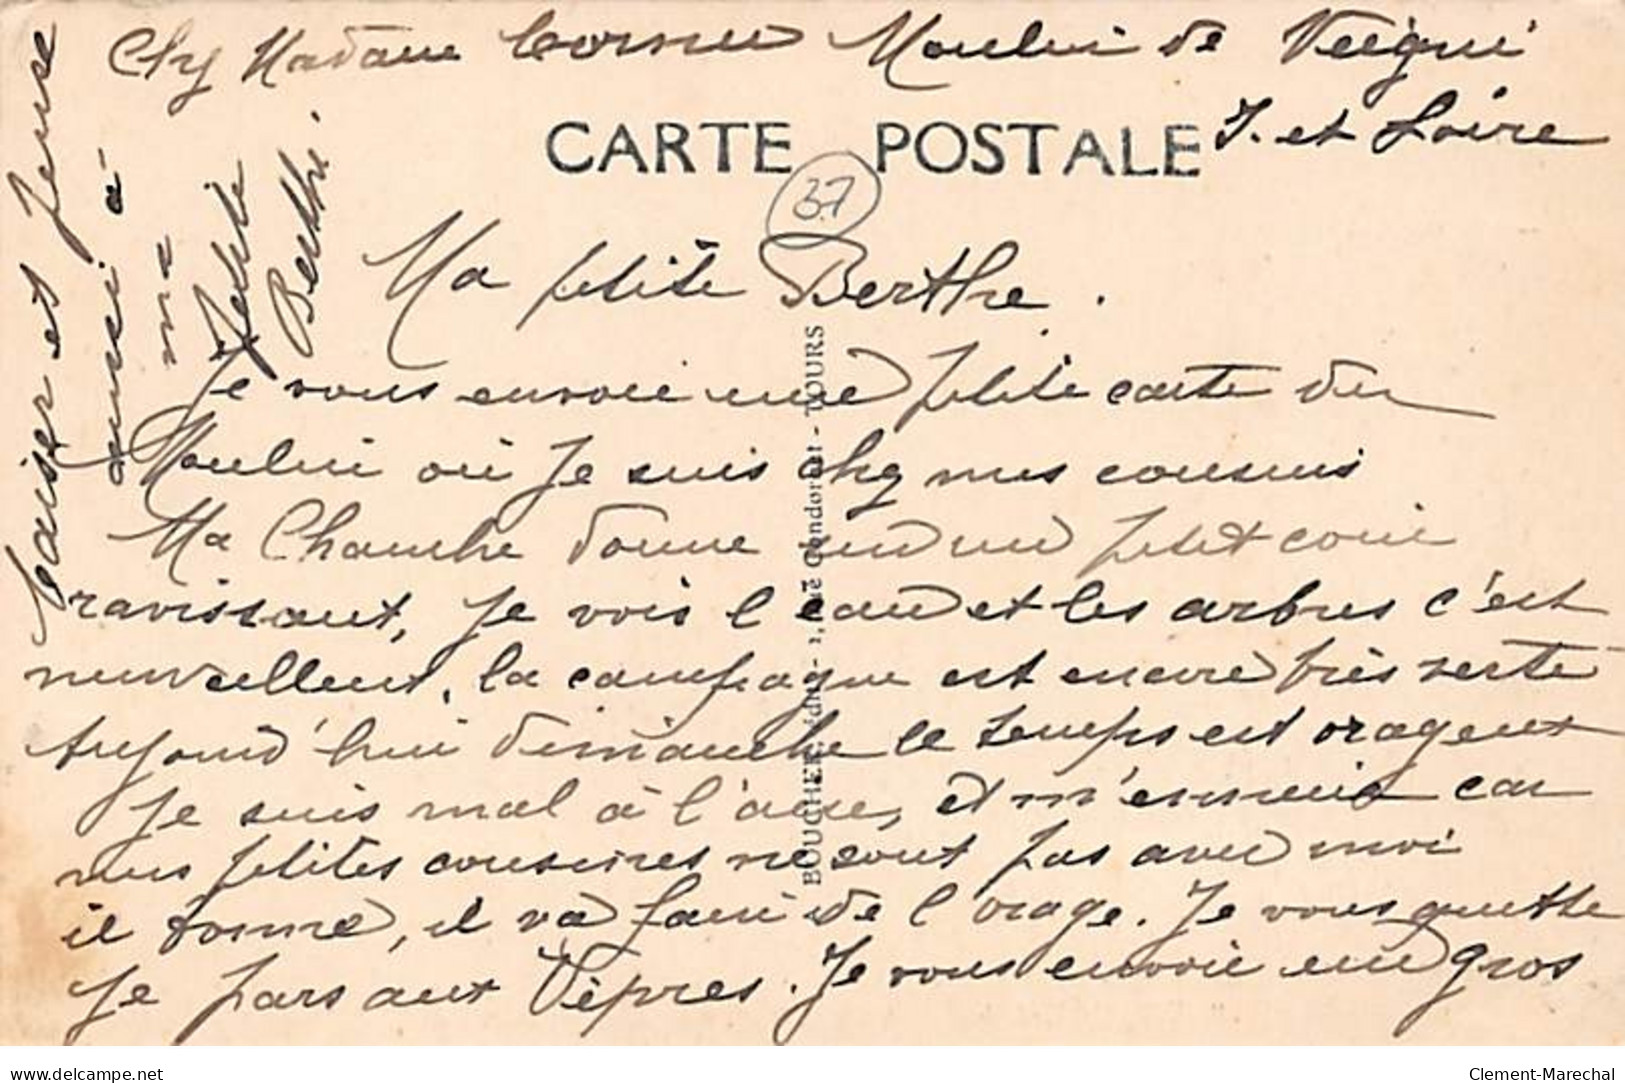 Chez Madame Cornu Moulin de Veigné
I. et Loire
CARTE POSTALE
37
Ma petite Berthe.
Je vous envoie une petite carte du
Moulin où je suis chez mes cousins
Ma Chambre donne sur un petit coin
ravissant, je vois l'eau et les arbres c'est
merveilleux, la campagne est encore très verte
Aujourd'hui dimanche le temps est orageux
Je suis mal à l'aise, et m'ennuie car
mes petites cousines ne sont pas avec moi
il tonne, il va faire de l'orage. Je vous quitte
je pars aux Vêpres. Je vous envoie un gros
baiser et pense
aussi à
ma
petite
Berthe.
BOUCHER édit. - 1, rue Condorcet - TOURS
www.delcampe.net
Clement-Marechal